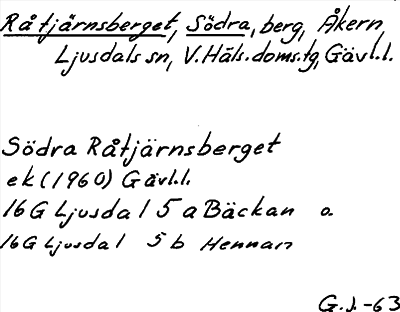 Råtjärnsberget, Södra, berg, Åkern,
Ljusdals sn, V. Häls. doms.tg, Gävl.l.
Södra Råtjärnsberget
ek (1960) Gävl.l.
16 G Ljusdal 5 a Bäckan o.
16 G Ljusdal 5 b Hennan
G.J. -63